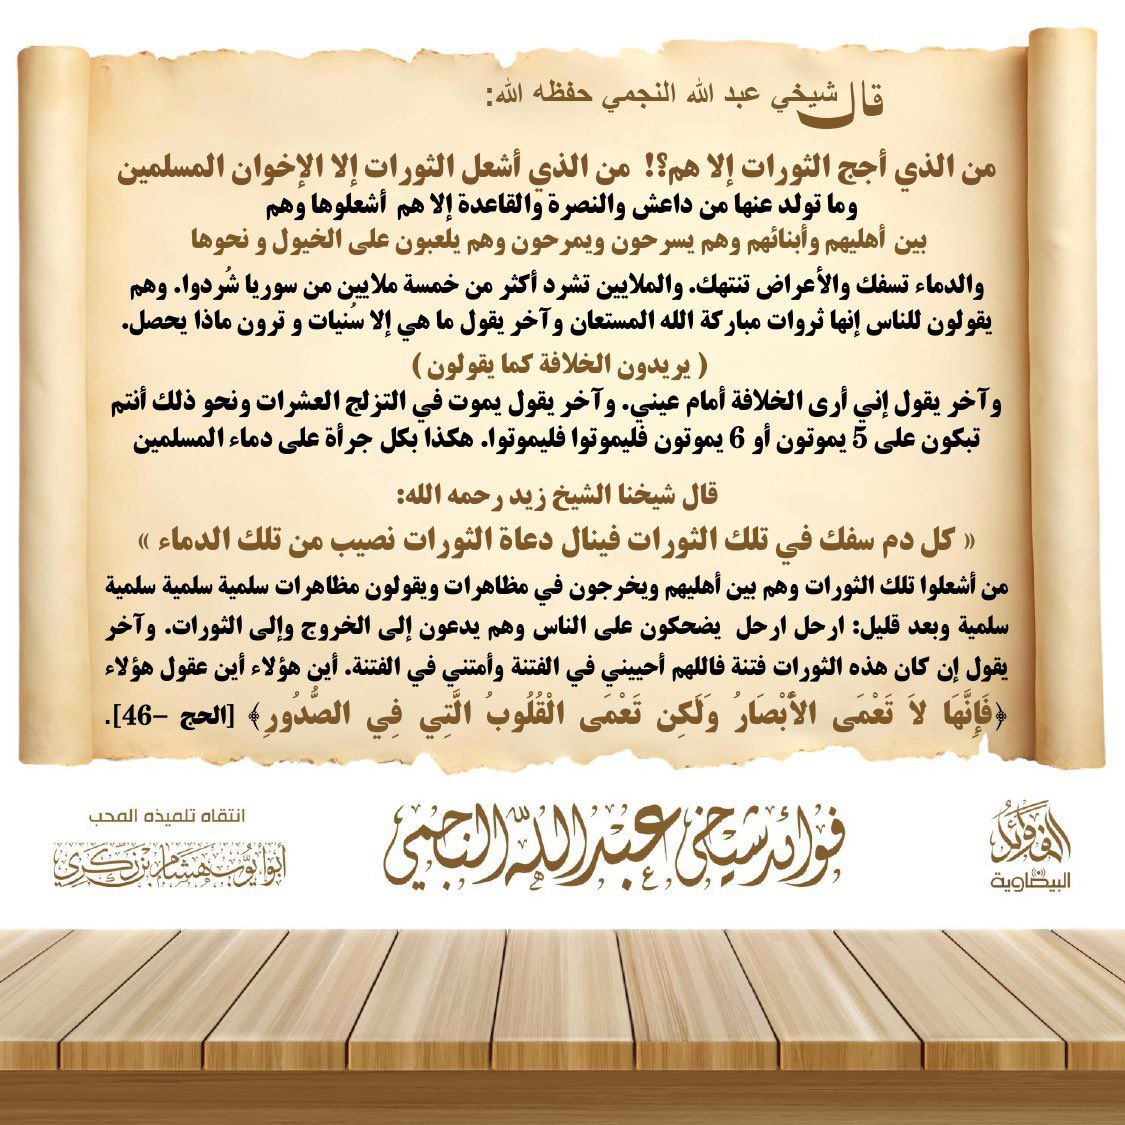 قال شيخي عبد الله النجمي حفظه الله:
من الذي أجج الثورات إلا هم؟! من الذي أشعل الثورات إلا الإخوان المسلمين
وما تولد عنها من داعش والنصرة والقاعدة إلا هم أشعلوها وهم
بين أهليهم وأبنائهم وهم يسرحون ويمرحون وهم يلعبون على الخيول و نحوها
والدماء تسفك والأعراض تنتهك. والملايين تشرد أكثر من خمسة ملايين من سوريا شُردوا. وهم
يقولون للناس إنها ثروات مباركة الله المستعان وآخر يقول ما هي إلا سُنيات و ترون ماذا يحصل.
( يريدون الخلافة كما يقولون )
وآخر يقول إني أرى الخلافة أمام عيني. وآخر يقول يموت في التزلج العشرات ونحو ذلك أنتم
تبكون على 5 يموتون أو 6 يموتون فليموتوا فليموتوا. هكذا بكل جرأة على دماء المسلمين
قال شيخنا الشيخ زيد رحمه الله:
« كل دم سفك في تلك الثورات فينال دعاة الثورات نصيب من تلك الدماء »
من أشعلوا تلك الثورات وهم بين أهليهم ويخرجون في مظاهرات ويقولون مظاهرات سلمية سلمية سلمية
سلمية وبعد قليل: ارحل ارحل يضحكون على الناس وهم يدعون إلى الخروج وإلى الثورات. وآخر
يقول إن كان هذه الثورات فتنة فاللهم أحييني في الفتنة وأمتني في الفتنة. أين هؤلاء أين عقول هؤلاء
﴿فَإِنَّهَا لاَ تَعْمَى الأَبْصَارُ وَلَكِن تَعْمَى الْقُلُوبُ الَّتِي فِي الصُّدُورِ﴾ [الحج –46].
الفوائد
البيضاوية
فوائد شيخي عبد الله النجمي
انتقاه تلميذه المحب
أبو أيوب هشام بن زكري